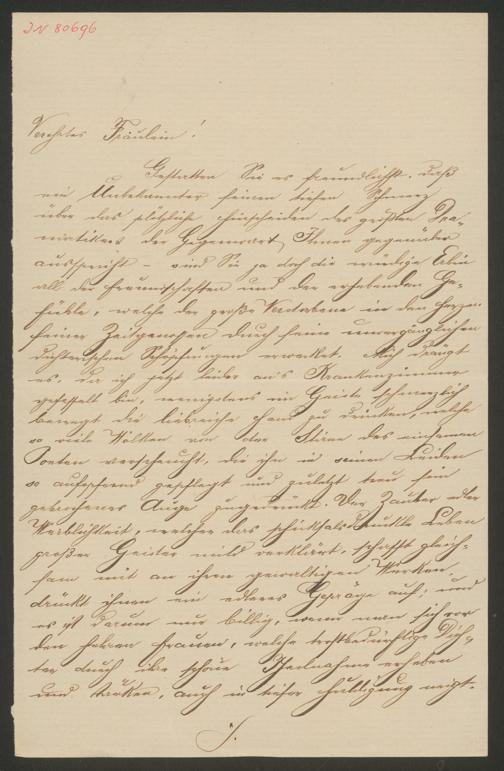 JN 80696
Verehrtes Fräulein!
Gestatten Sie es freundlichst, daß
ein Unbekannter seinen tiefen Schmerz
über das plötzliche Hinscheiden des größten Dra-
matikers der Gegenwart, Ihnen gegenüber
ausspricht – sind Sie ja doch die würdige Erbin
all der Freundschaften und der erhebenden Ge-
fühle, welche der große Verstorbene in den Herzen
seiner Zeitgenossen durch seine unvergänglichen
dichterischen Schöpfungen erwecket. Mich drängt
es, da ich jetzt leider an's Krankenzimmer
gefesselt bin, wenigstens im Geiste schmerzlich
bewegt die liebreiche Hand zu drücken, welche
so viele Wolken von der Stirne des einsamen
Poeten verscheucht, die ihn in seinen Leiden
so aufopfernd gepflegt und zuletzt treu sein
gebrochenes Auge zugedrückt. Der Zauber edler
Weiblichkeit, welcher das Leben
großer Geister mild verklärt, schafft gleich-
sam mit an ihren gewaltigen Werken,
drückt ihnen ein edleres Gepräge auf; und
es ist darum nur billig, wenn man sich vor
den hehren Frauen, welche trostbedürftige Dich-
ter durch ihre schöne Theilnahme erheben
und stärken, auch in tiefer Huldigung neigt.